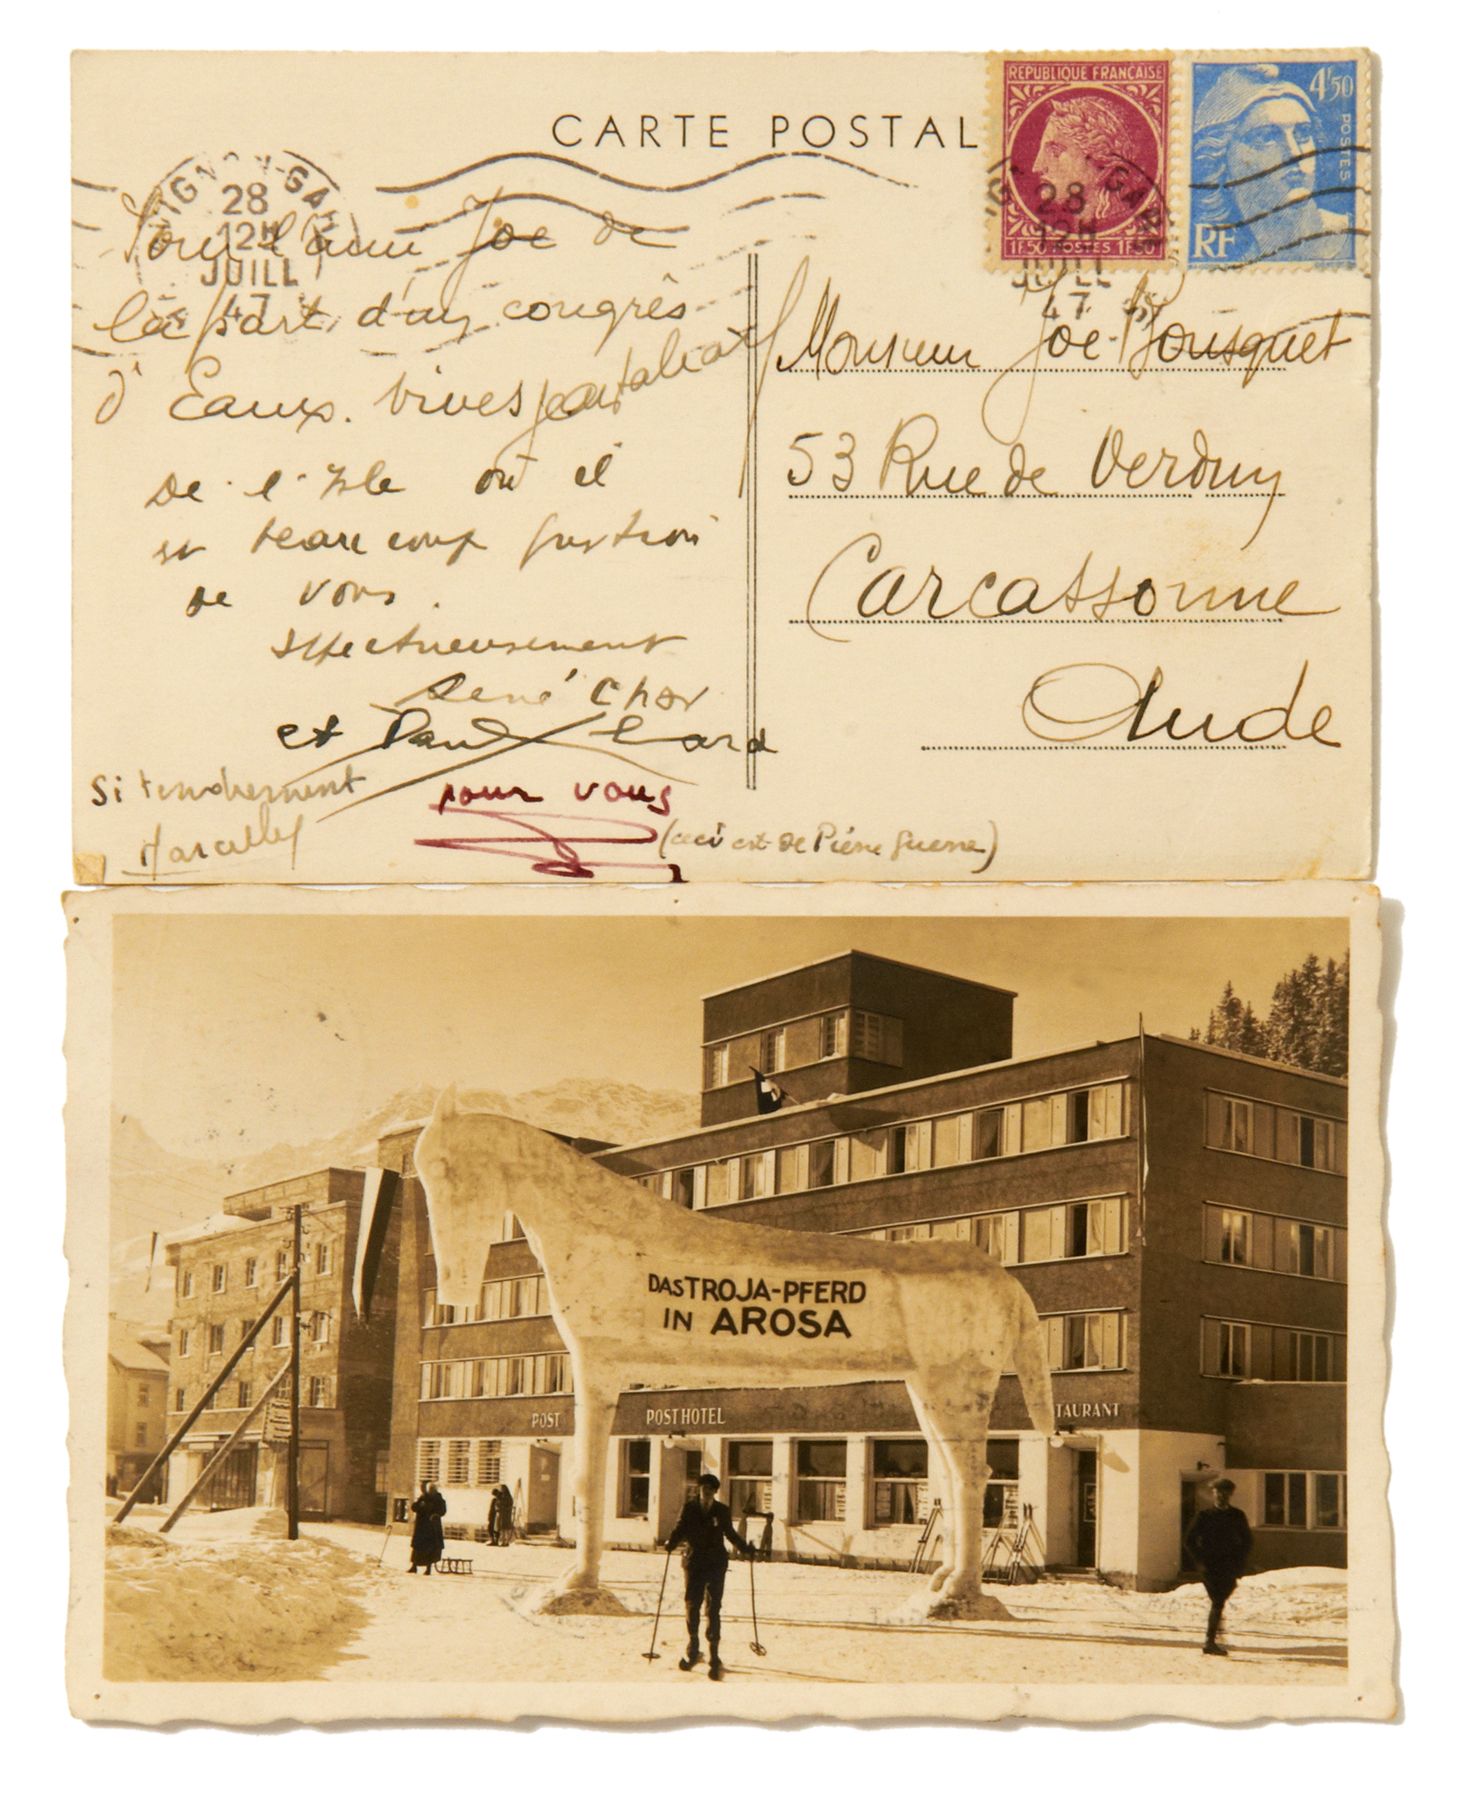 CARTE POSTAL
REPUBLIQUE FRANÇAISE
1F50 POSTES 1F50
4F50
POSTES
RF
28
12H
JUILL
47
28
12H
JUILL
47
Pour l'ami Joe de
la part d'un congrès
d'Eaux. vives
de l'Isle où il
beaucoup question
de vous.
affectueusement
René Char
et Paul Eluard
Si tendrement
Marcelle
pour vous
(ceci est de Pierre Guerre)
Monsieur Joe Bousquet
53 Rue de Verdun
Carcassonne
Aude
DAS TROJA-PFERD
IN AROSA
POST
POSTHOTEL
TAURANT